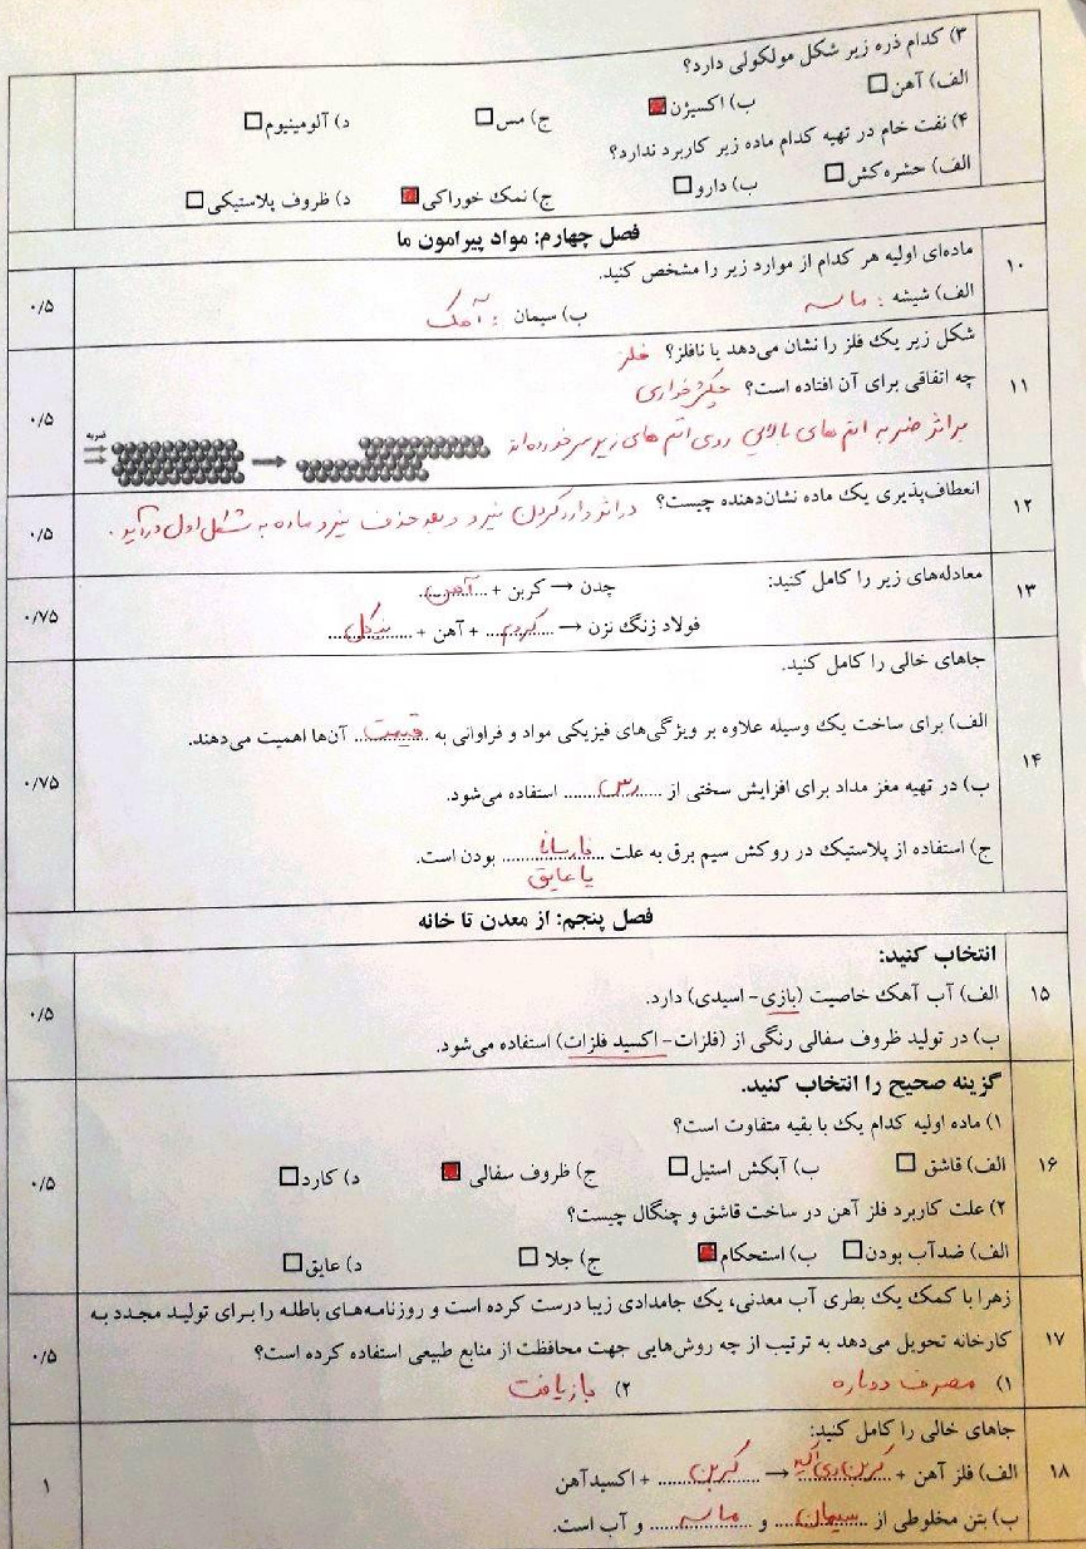 ۳) کدام ذره زیر شکل مولکولی دارد؟
الف) آهن ب) اکسیژن ج) مس د) آلومینیوم
۴) نفت خام در تهیه کدام ماده زیر کاربرد ندارد؟
الف) حشره کش ب) دارو ج) نمک خوراکی د) ظروف پلاستیکی
فصل چهارم: مواد پیرامون ما
۱۰ ماده‌ای اولیه هر کدام از موارد زیر را مشخص کنید. ۰/۵
الف) شیشه : ماسه ب) سیمان : آهک
۱۱ شکل زیر یک فلز را نشان می‌دهد یا نافلز؟ فلز ۰/۵
چه اتفاقی برای آن افتاده است؟ چکش خواری
براثر ضربه اتم های بالایی روی اتم های زیر سر خورده‌اند
ضربه
۱۲ انعطاف‌پذیری یک ماده نشان‌دهنده چیست؟ در اثر وارد کردن نیرو و بعد حذف نیرو ماده به شکل اول درآید . ۰/۵
۱۳ معادله‌های زیر را کامل کنید: چدن → کربن + آهن ۰/۷۵
فولاد زنگ نزن → کروم + آهن + نیکل
جاهای خالی را کامل کنید.
۱۴ الف) برای ساخت یک وسیله علاوه بر ویژگی‌های فیزیکی مواد و فراوانی به قیمت آن‌ها اهمیت می‌دهند. ۰/۷۵
ب) در تهیه مغز مداد برای افزایش سختی از رس استفاده می‌شود.
ج) استفاده از پلاستیک در روکش سیم برق به علت نارسانا بودن است.
یا عایق
فصل پنجم: از معدن تا خانه
انتخاب کنید:
۱۵ الف) آب آهک خاصیت (بازی- اسیدی) دارد. ۰/۵
ب) در تولید ظروف سفالی رنگی از (فلزات- اکسید فلزات) استفاده می‌شود.
گزینه صحیح را انتخاب کنید.
۱) ماده اولیه کدام یک با بقیه متفاوت است؟
۱۶ الف) قاشق ب) آبکش استیل ج) ظروف سفالی د) کارد ۰/۵
۲) علت کاربرد فلز آهن در ساخت قاشق و چنگال چیست؟
الف) ضدآب بودن ب) استحکام ج) جلا د) عایق
زهرا با کمک یک بطری آب معدنی، یک جامدادی زیبا درست کرده است و روزنامه‌های باطله را برای تولید مجدد به
۱۷ کارخانه تحویل می‌دهد به ترتیب از چه روش‌هایی جهت محافظت از منابع طبیعی استفاده کرده است؟ ۰/۵
۱) مصرف دوباره ۲) بازیافت
جاهای خالی را کامل کنید:
۱۸ الف) فلز آهن + کربن دی اکسید → کربن + اکسیدآهن ۱
ب) بتن مخلوطی از سیمان و ماسه و آب است.